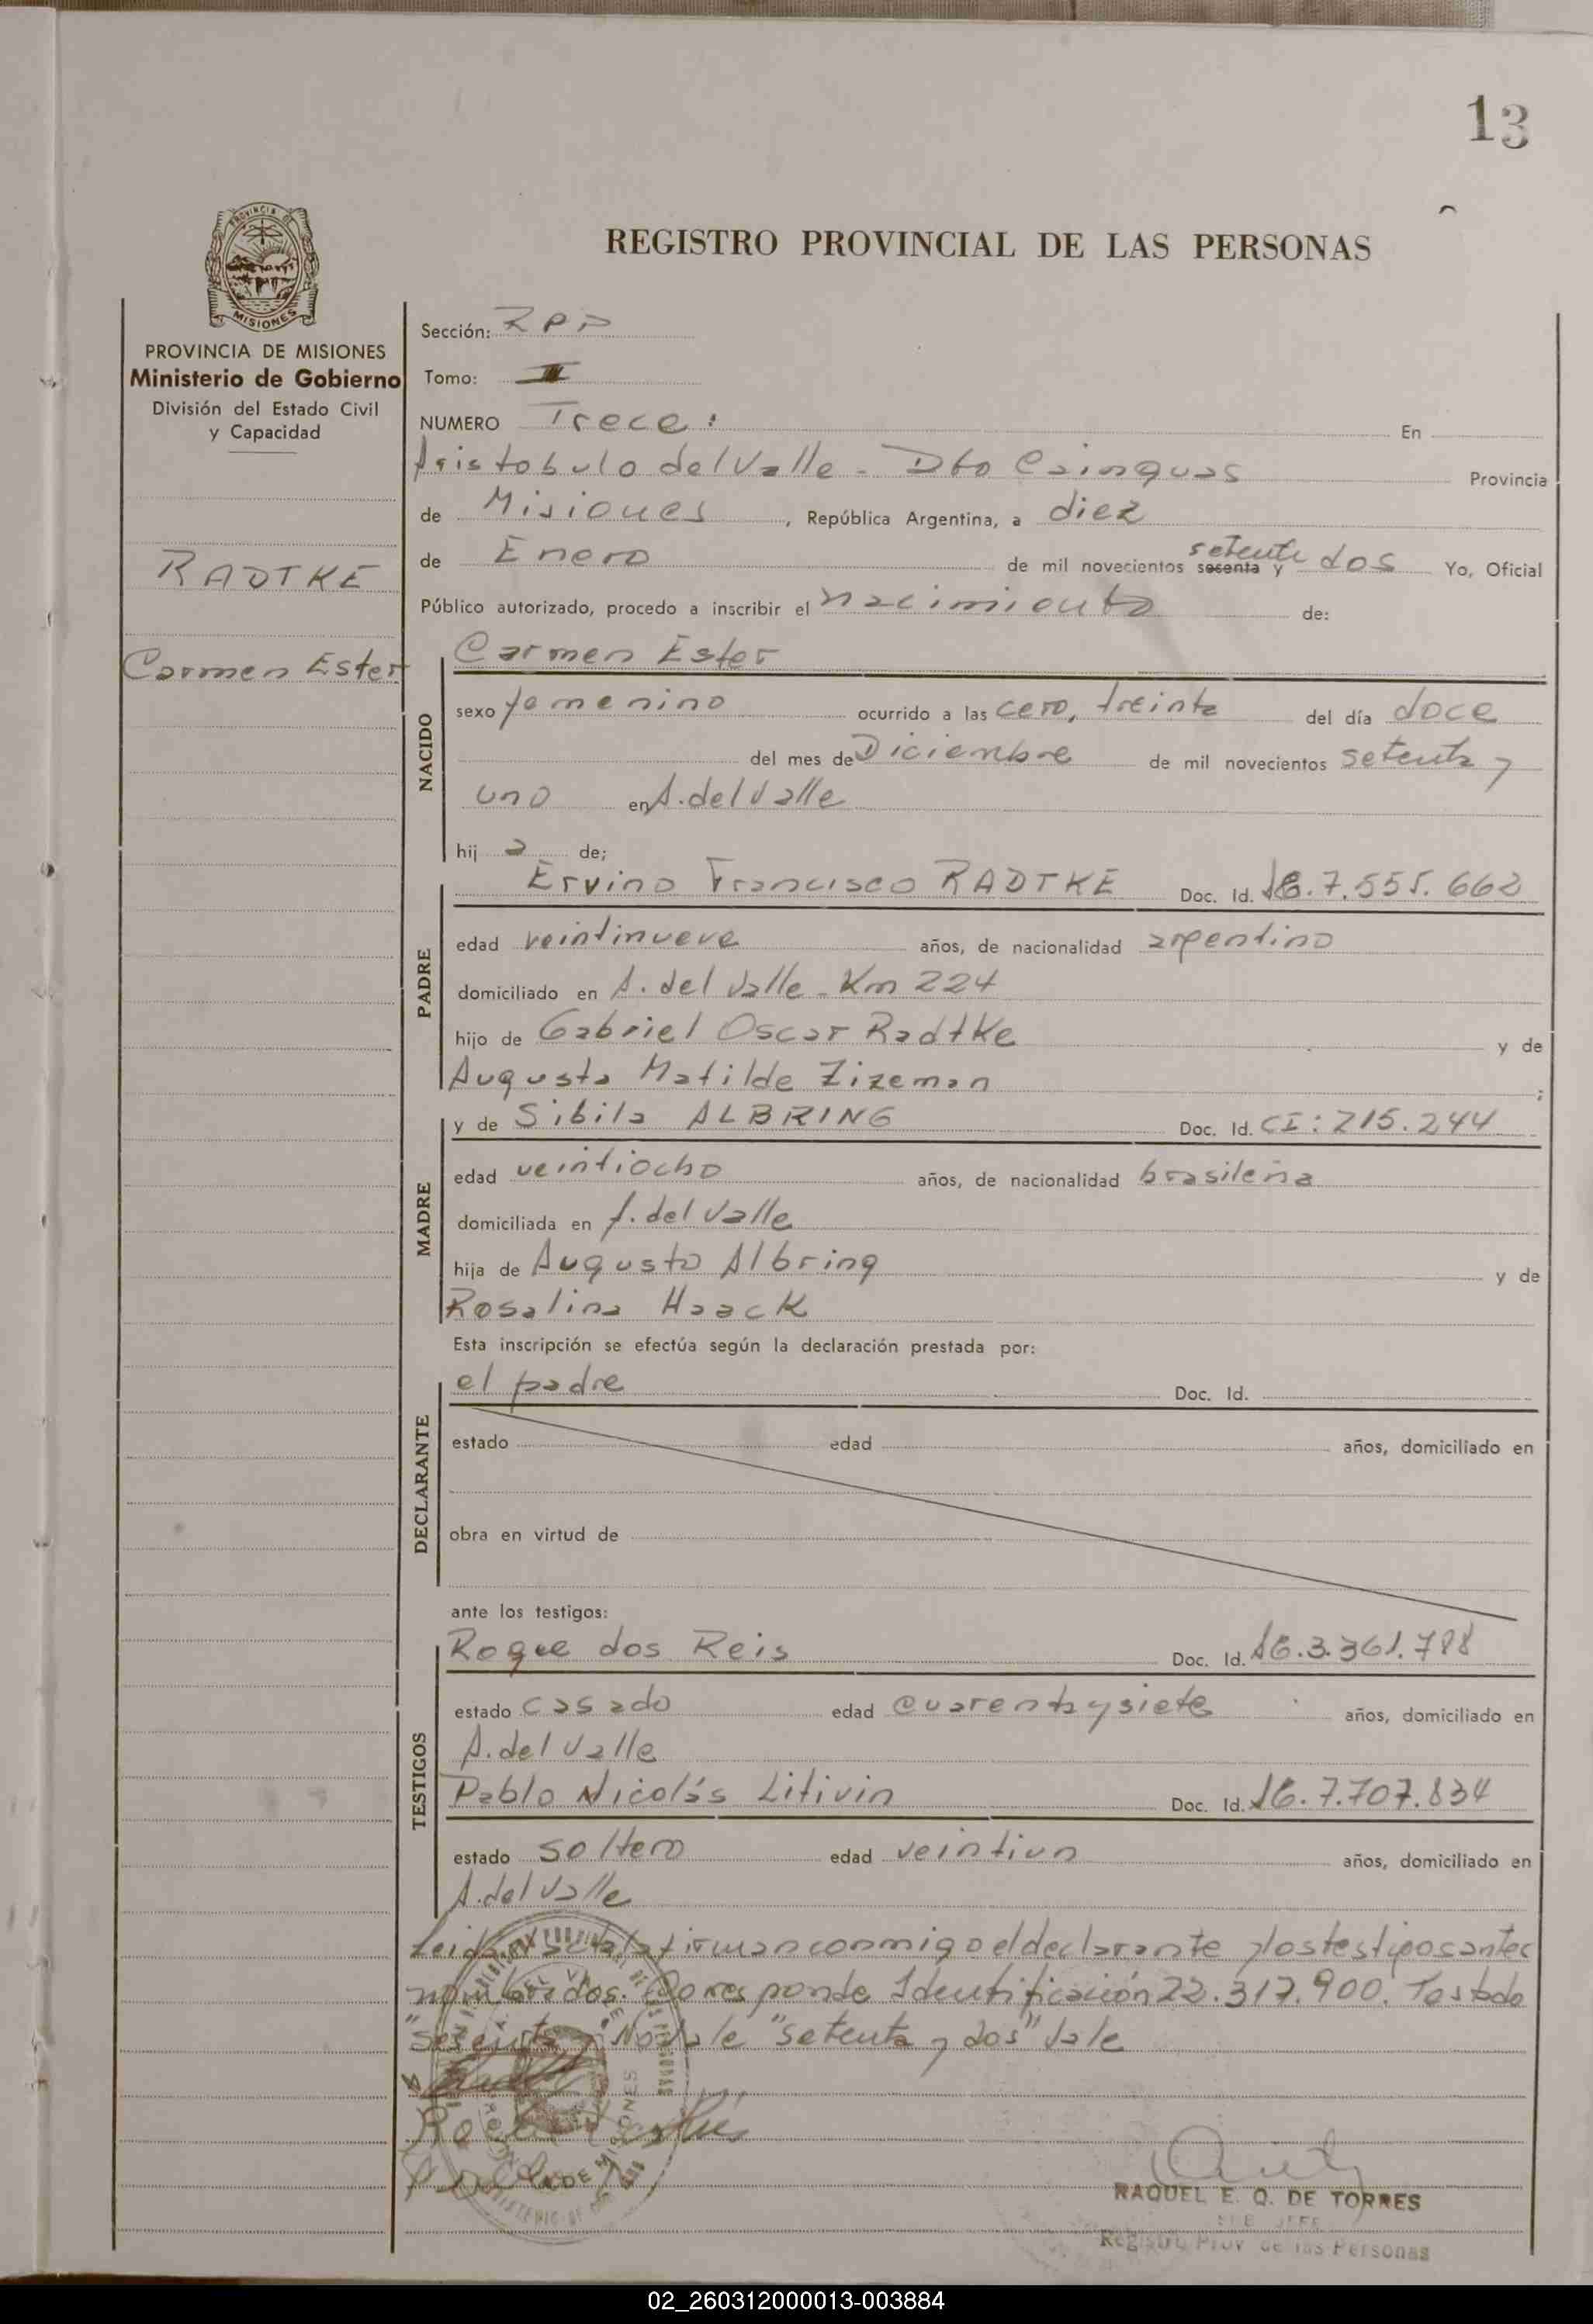 13
PROVINCIA DE
MISIONES
REGISTRO PROVINCIAL DE LAS PERSONAS
PROVINCIA DE MISIONES
Ministerio de Gobierno
División del Estado Civil
y Capacidad
RADTKE
Carmen Ester
Sección: RPP
Tomo: II
NUMERO Trece: En
Aristobulo del Valle - Dto Cainguas Provincia
de Misiones, República Argentina, a diez
de Enero de mil novecientos sesenta y setenta dos Yo, Oficial
Público autorizado, procedo a inscribir el nacimiento de:
NACIDO
Carmen Ester
sexo femenino ocurrido a las cero, treinta del día doce
del mes de Diciembre de mil novecientos setenta y
uno en A. del Valle
hij a de;
PADRE
Ervino Francisco RADTKE Doc. Id. 7.555.662
edad veintinueve años, de nacionalidad argentino
domiciliado en A. del Valle - Km 224
hijo de Gabriel Oscar Radtke y de
Augusta Matilde Zizeman ;
MADRE
y de Sibila ALBRING Doc. Id. CI: 215.244
edad veintiocho años, de nacionalidad brasileña
domiciliada en A. del Valle
hija de Augusto Albring y de
Rosalina Haack
Esta inscripción se efectúa según la declaración prestada por:
DECLARANTE
el padre Doc. Id.
estado edad años, domiciliado en
obra en virtud de
ante los testigos:
TESTIGOS
Roque dos Reis Doc. Id. 3.361.788
estado casado edad cuarenta y siete años, domiciliado en
A. del Valle
Pablo Nicolás Litivin Doc. Id. 7.707.834
estado soltero edad veintiun años, domiciliado en
A. del Valle
Leida el acta la firman conmigo el declarante y los testigos antes
nombrados. Corresponde Identificación 22.317.900. Testado
"sesenta" No vale "setenta y dos" Vale
RAQUEL E. Q. DE TORRES
SUB JEFE
Registro Prov de las Personas
02_260312000013-003884